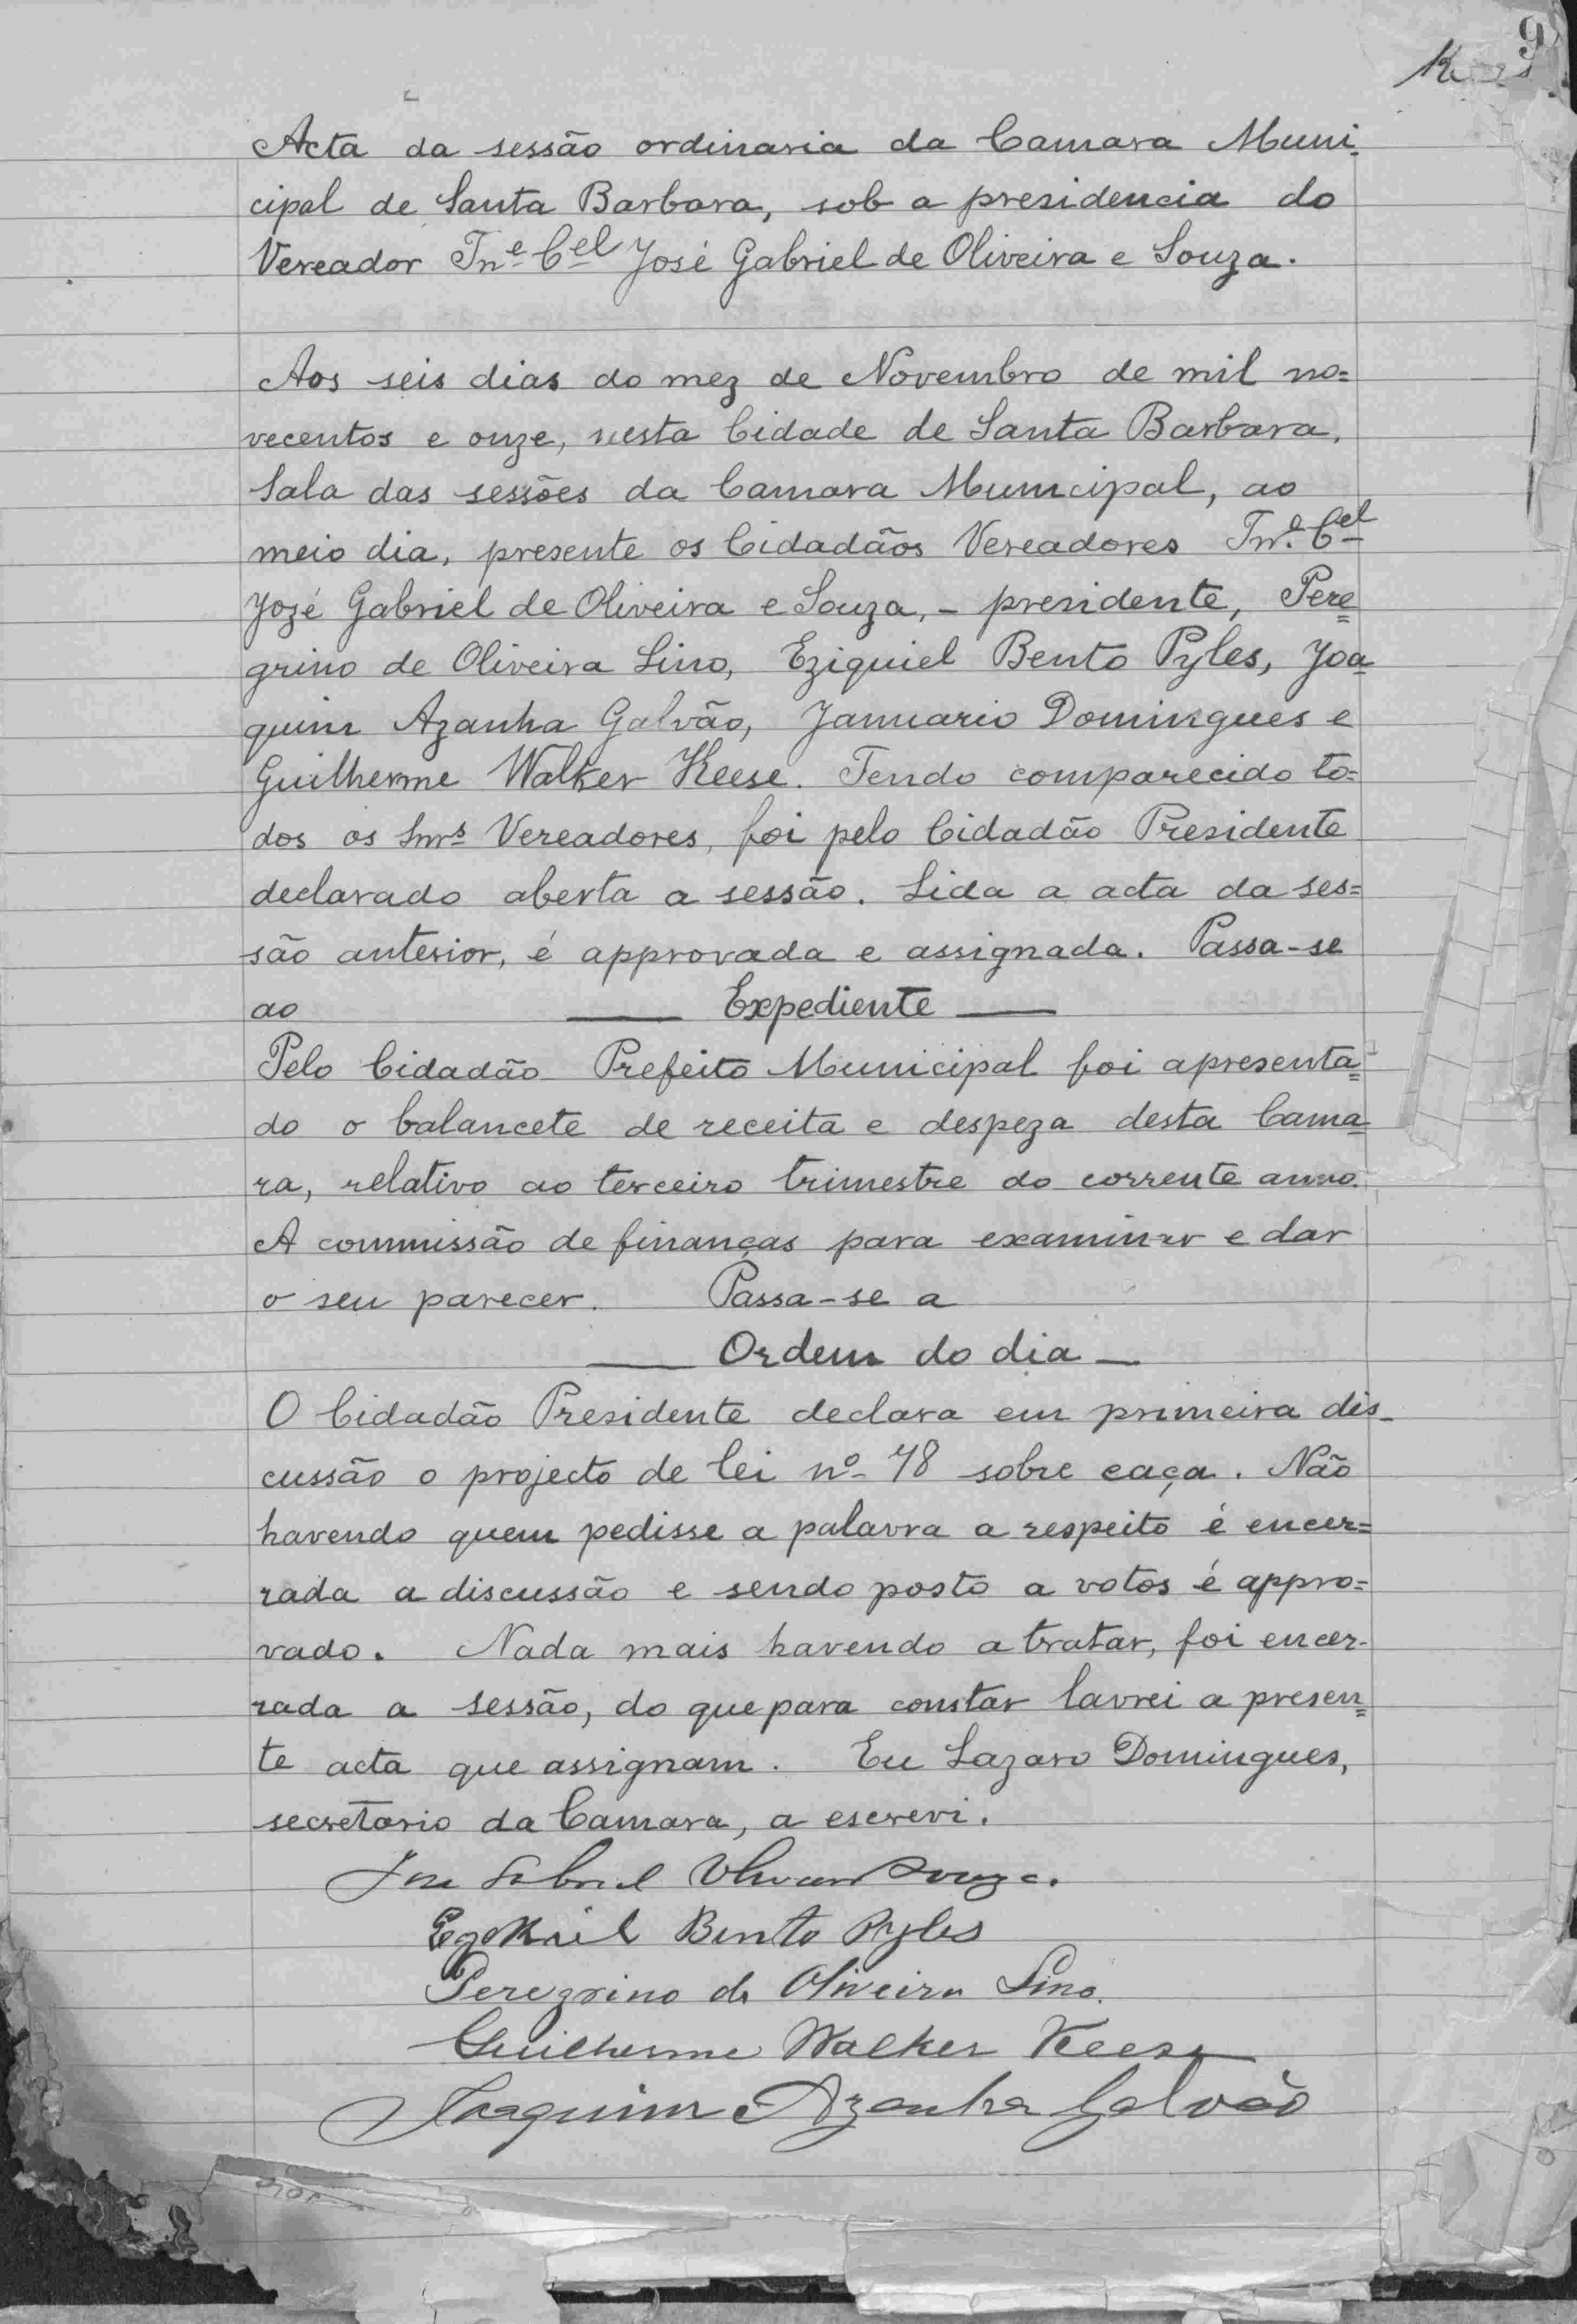 9
Acta da sessão ordinaria da Camara Muni-
cipal de Santa Barbara, sob a presidencia do
Vereador Tne Cel José Gabriel de Oliveira e Souza.
Aos seis dias do mez de Novembro de mil no=
vecentos e onze, nesta Cidade de Santa Barbara,
Sala das sessões da Camara Municipal, ao
meio dia, presente os Cidadãos Vereadores Tne. Cel
Jozé Gabriel de Oliveira e Souza, - presidente, Pere=
grino de Oliveira Lino, Eziquiel Bento Pyles, Joa-
quim Azanha Galvão, Januario Domingues e
Guilherme Walker Keese. Tendo comparecido to=
dos os Snrs Vereadores, foi pelo Cidadão Presidente
declarado aberta a sessão. Lida a acta da ses=
são anterior, é approvada e assignada. Passa-se
ao — Expediente —
Pelo Cidadão Prefeito Municipal foi apresenta=
do o balancete de receita e despeza desta Cama-
ra, relativo ao terceiro trimestre do corrente anno.
A commissão de finanças para examinar e dar
o seu parecer. Passa-se a
— Ordem do dia —
O Cidadão Presidente declara em primeira dis-
cussão o projecto de lei nº 48 sobre caça. Não
havendo quem pedisse a palavra a respeito é encer=
rada a discussão e sendo posto a votos é appro=
vado. Nada mais havendo a tratar, foi encer-
rada a sessão, do que para constar lavrei a presen=
te acta que assignam. Eu Lazaro Domingues,
secretario da Camara, a escrevi.
José Gabriel Oliveira Souza.
Ezekiel Bento Pyles
Peregrino de Oliveira Lino.
Guilherme Walker Keese
Joaquim Azanha Galvão